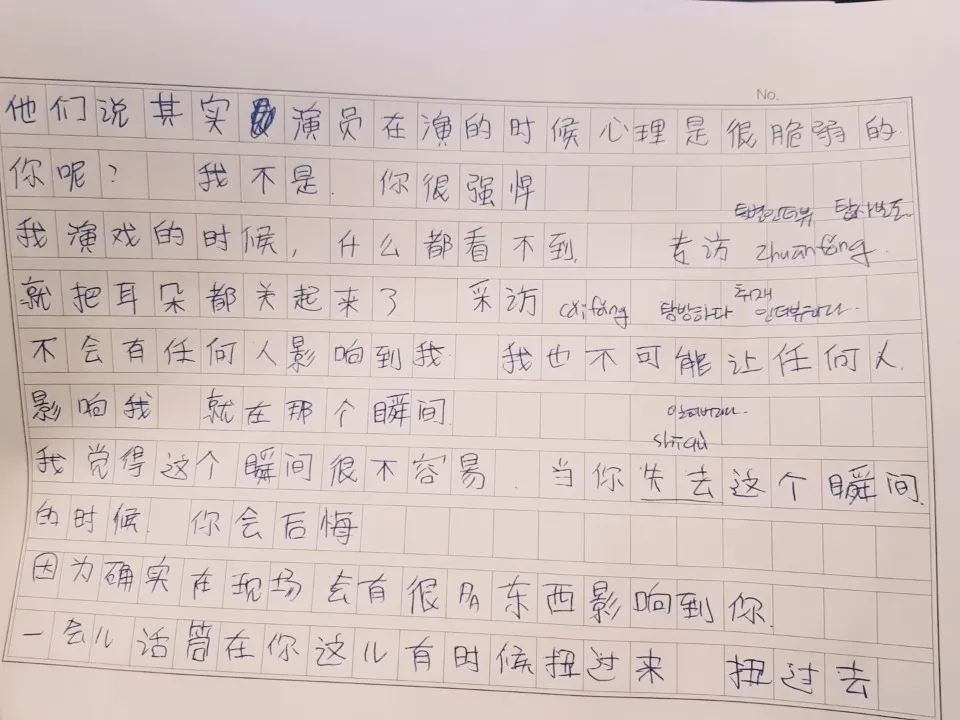 No.
他们说其实演员在演的时候心理是很脆弱的.
你呢? 我不是. 你很强悍
탐방인터뷰 탐사보도
我演戏的时候, 什么都看不到. 专访 zhuanfǎng.
就把耳朵都关起来了 采访 cǎifǎng 탐방하다 취재 인터뷰하다.
不会有任何人影响到我 我也不可能让任何人.
影响我 就在那个瞬间. 잃어버리다.
shīqù
我觉得这个瞬间很不容易. 当你失去这个瞬间.
的时候. 你会后悔
因为确实在现场会有很多东西影响到你.
一会儿话筒在你这儿有时候扭过来 扭过去